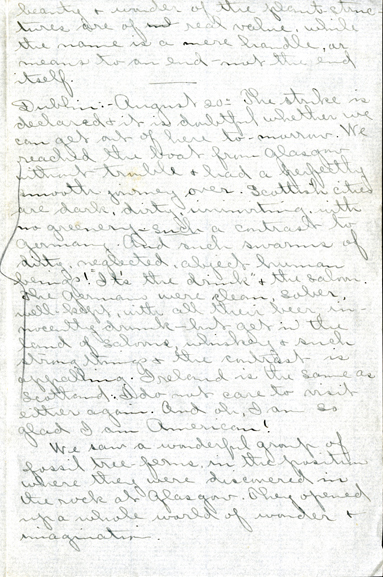 beauty & wonder of the plant struc-
tures are of real value, while
the name is a mere handle, or
means to an end—not the end
itself.
Dublin:- August 20= The strike is
declared & it is doubtful whether we
can get out of here to-morrow. We
reached the boat from Glasgow
without trouble & had a perfectly
smooth journey over. Scottish cities
are dark, dirty, uninviting, with
no greenery—such a contrast to
Germany. And such swarms of
dirty, neglected, abject human
beings! "It's the drink" & the saloon.
The Germans were clean, sober,
well kept, with all their beer, in-
nocently drunk—but get in the
land of saloons, whiskey & such
strong things & the contrast is
appalling. Ireland is the same as
Scotland. I do not care to visit
either again. And oh, I am so
glad I am American!
We saw a wonderful group of
fossil tree-ferns, in the position
where they were discovered in
the rock at Glasgow. They opened
up a whole world of wonder &
imagination.